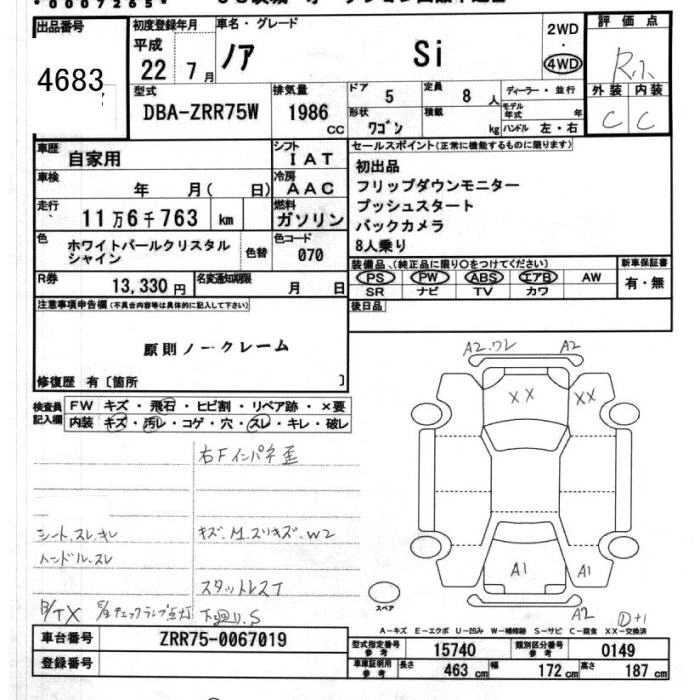 出品番号 初度登録年月 車名・グレード 2WD 評価点
4683 平成 22 7月 ノア Si ・ 4WD
型式 排気量 ドア 定員 ディーラー・並行 外装 内装
DBA-ZRR75W 1986 CC 5 8人 モデル年式 年 C C
形状 ワゴン 積載 kg ハンドル 左・右
車歴 自家用 シフト IAT セールスポイント(正常に機能するものに限ります)
車検 年 月( 日) 冷房 AAC 初出品
フリップダウンモニター
走行 11万6千763 km 燃料 ガソリン プッシュスタート
バックカメラ
色 ホワイトパールクリスタルシャイン 色替 色コード 070 8人乗り
装備品(純正品に限り○をつけてください) 新車保証書
R券 13,330円 名変通知期限 月 日 PS PW ABS エアB AW 有・無
SR ナビ TV カワ
注意事項申告欄(不具合内容等は具体的に記入して下さい) 後日品
原則ノークレーム
修復歴 有〔箇所 〕
A2.ワレ A2
XX XX
検査員記入欄 FW キズ・飛石・ヒビ割・リペア跡・×要
内装 キズ・汚レ・コゲ・穴・スレ・キレ・破レ
右Fインパネ歪
シート.スレ.キレ キズ.M.スリキズ.W2
ハンドル.スレ
スタットレスT
チェックランプ点灯 下廻り.S
A1 A1
スペア A2
A-キズ E-エクボ U-凹み W-補修跡 S-サビ C-腐食 XX-交換済
車台番号 ZRR75-0067019 型式指定番号 参考 15740 類別区分番号 参考 0149
登録番号 車庫証明用 参考 長さ 463 cm 幅 172 cm 高さ 187 cm